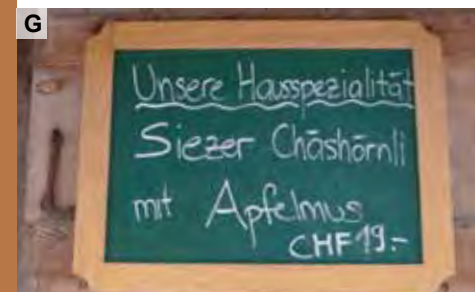 G
Unsere Hausspezialität
Siezer Chäshörnli
mit Apfelmus
CHF 19.-